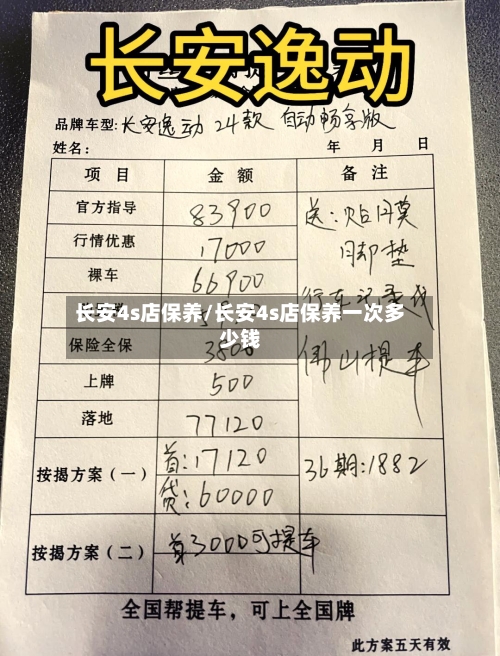 长安逸动
品牌车型: 长安逸动 24款 自动畅享版
姓名: 年 月 日
项 目 金 额 备 注
官方指导 83900 送:贴膜
行情优惠 17000 脚垫
裸车 66900 行车记录仪
长安4s店保养/长安4s店保养一次多
少钱
保险全保 佛山提车
上牌 500
落地 77120
按揭方案(一) 首:17120 36期:1882
贷:60000
按揭方案(二) 首3000可提车
全国帮提车,可上全国牌
此方案五天有效